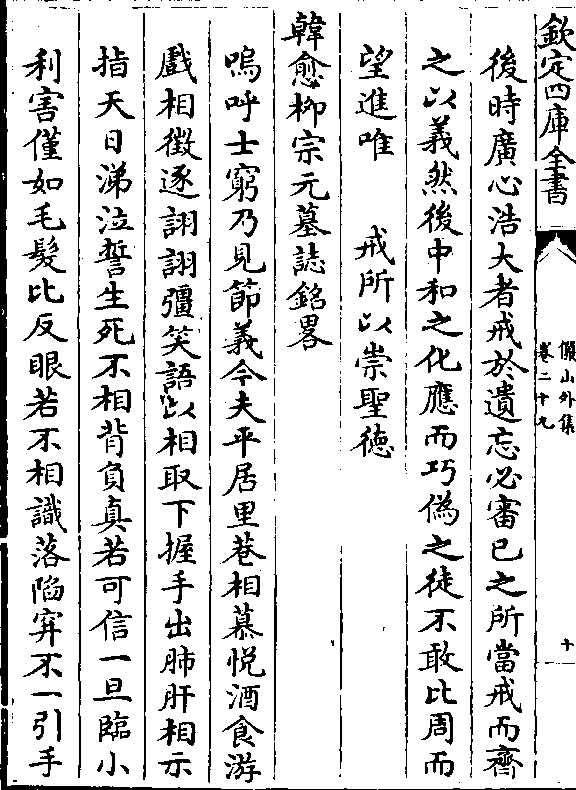 欽定四庫全書
儼山外集
卷二十九
十
後時廣心浩大者戒於遺忘必審已之所當戒而齊
之以義然後中和之化應而巧偽之徒不敢比周而
望進唯　戒所以崇聖德
韓愈柳宗元墓誌銘畧
嗚呼士窮乃見節義今夫平居里巷相慕悅酒食游
戲相徵逐詡詡彊笑語以相取下握手出肺肝相示
指天日涕泣誓生死不相背負真若可信一旦臨小
利害僅如毛髮比反眼若不相識落陷穽不一引手